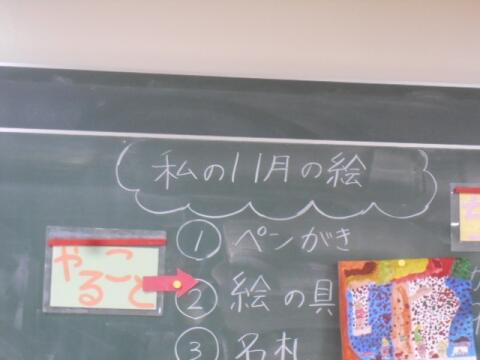 私の11月の絵
やること
① ペンがき
② 絵の具
③ 名札